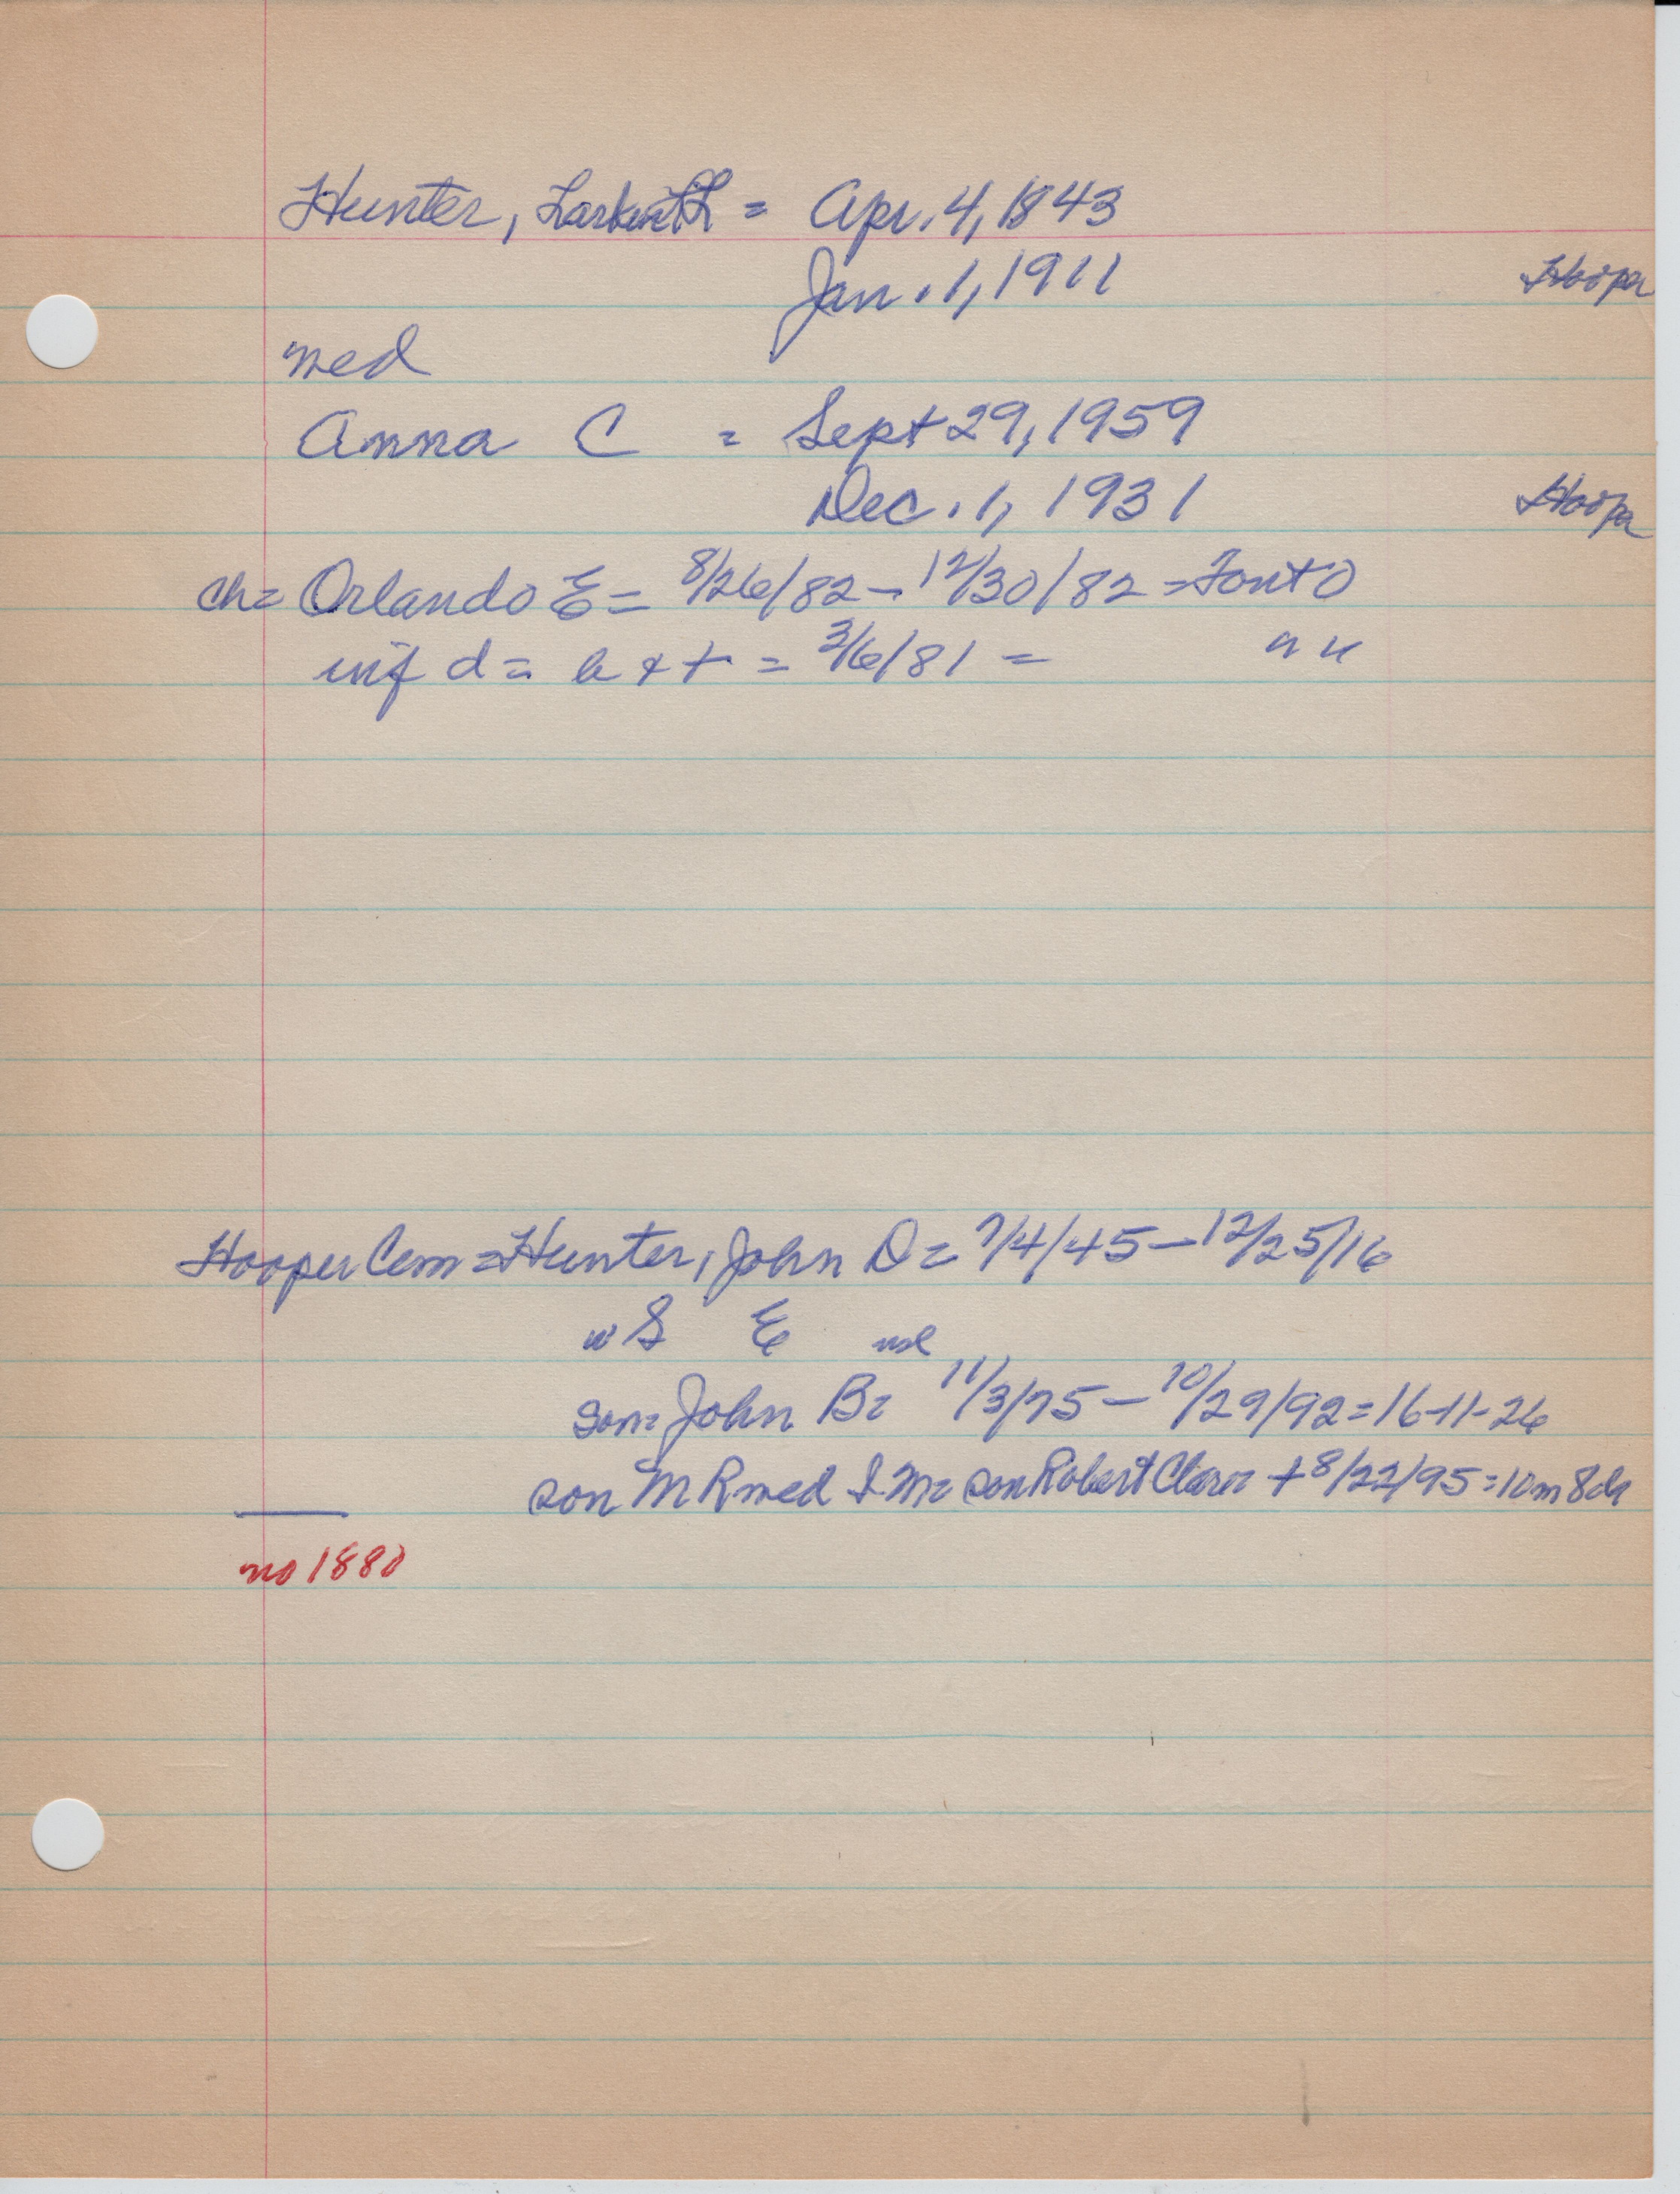 Hunter, Larkin = Apr. 4, 1843
Jan. 1, 1911 Hooper
med
Anna C = Sept 29, 1959
Dec. 1, 1931 Hooper
ch= Orlando E = 8/26/82 - 12/30/82 = Font O
inf d = b + + = 3/6/81 = " "
Hooper Cem = Hunter, John D = 7/4/45 - 12/25/16
w S E
son= John B= 11/3/75 - 10/29/92 = 16-11-26
son M R med I M= son Robert + 8/22/95 = 10m 8d
no 1880